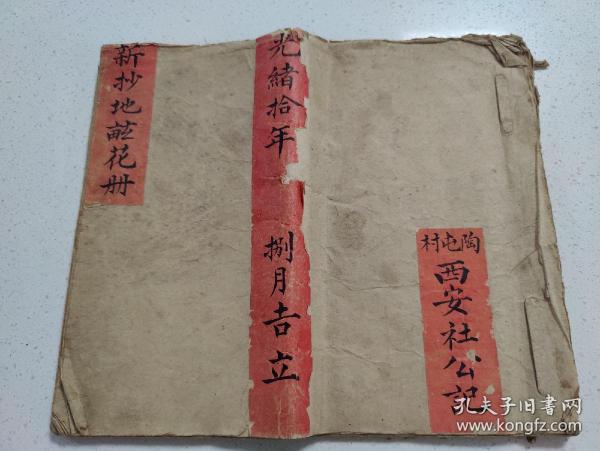 新抄地畝花册
光緒拾年 捌月吉立
陶屯村
西安社公記
孔夫子旧书网
www.kongfz.com